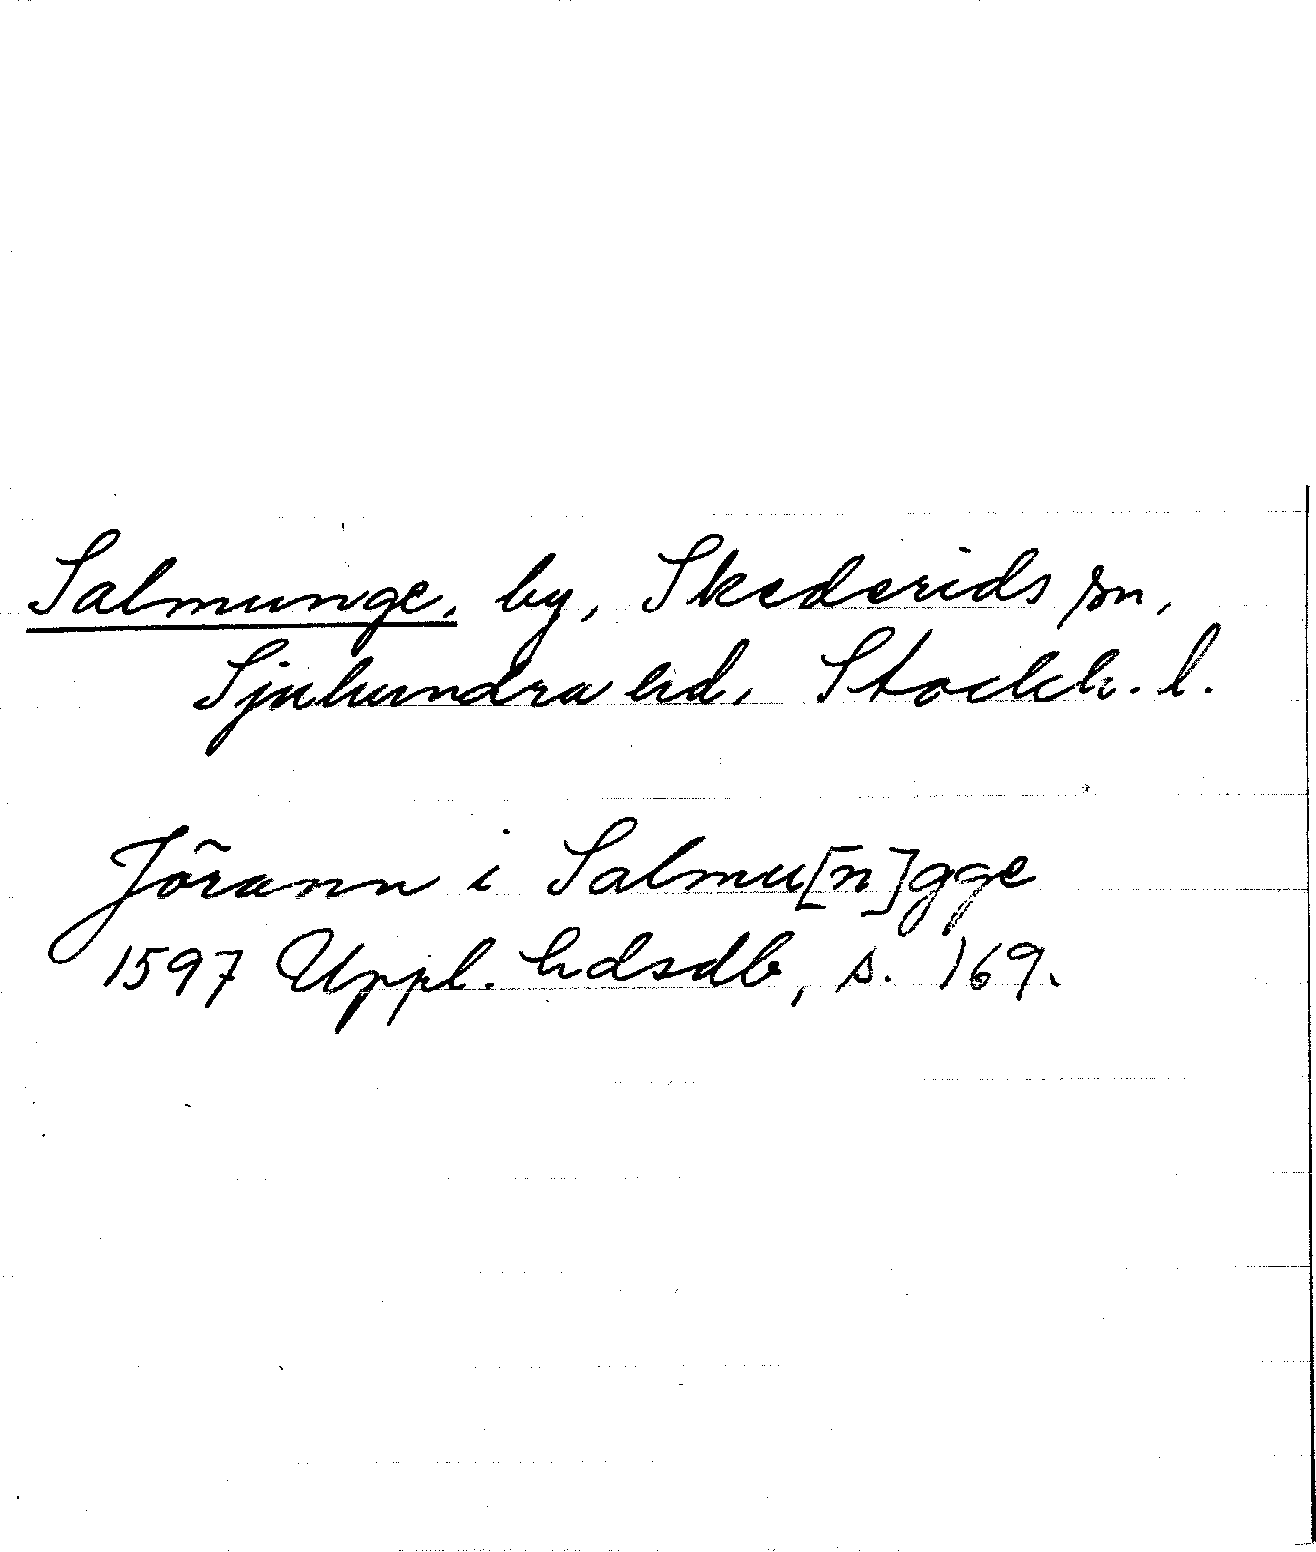 Salmunge, by, Skederids sn,
Sjuhundra hd, Stockh. l.
Jörann i Salmu[n]gge
1597 Uppl. hdsdb, s. 169.